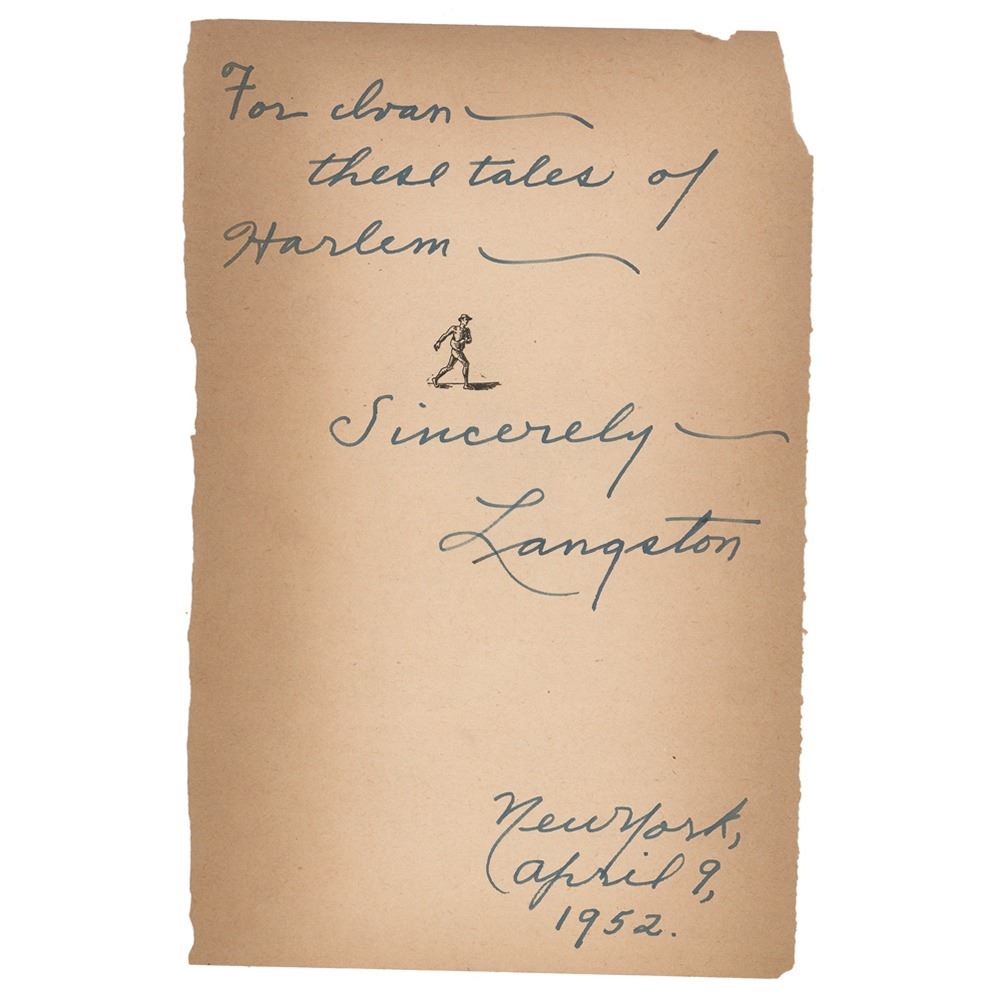 For Ivan —
these tales of
Harlem —
Sincerely —
Langston
New York,
April 9,
1952.